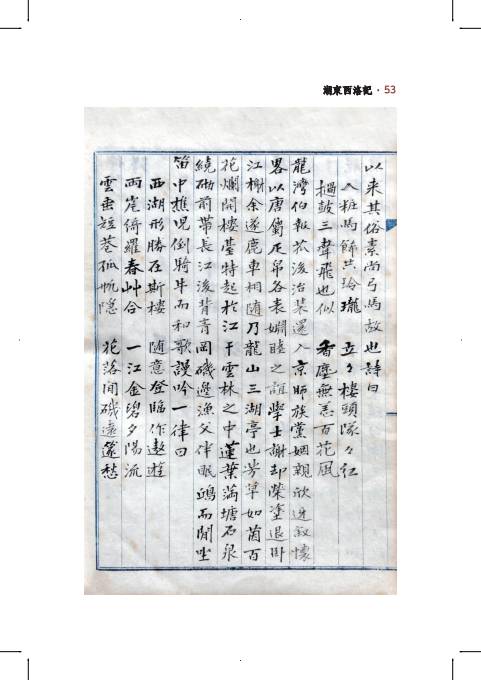 湖東西洛記 · 53
以来其俗素尚弓馬故也詩曰
人粧馬餙共玲瓏 立々樓頭隊々红
撾鼓三聲飛也似 香塵無恙百花風
龍灣伯報裝還入京師族黨姻親欣迓敘懷
畧以唐鴈尺帛各表嫺睦之誼學士謝却榮塗退卧
江榭余遂鹿車相隨乃龍山三湖亭也芳草如茵百
花爛開樓臺特起於江干雲林之中蓮葉滿塘石泉
繞砌前帶長江後背青岡磯邊漁父伴眠鷗而閒坐
笛中樵児倒騎牛而和歌謾吟一律曰
西湖形勝在斯樓 隨意登臨作遨遊
兩崖綺羅春艸合 一江金碧夕陽流
雲垂短巷孤帆隱 花落閒磯遠篴愁